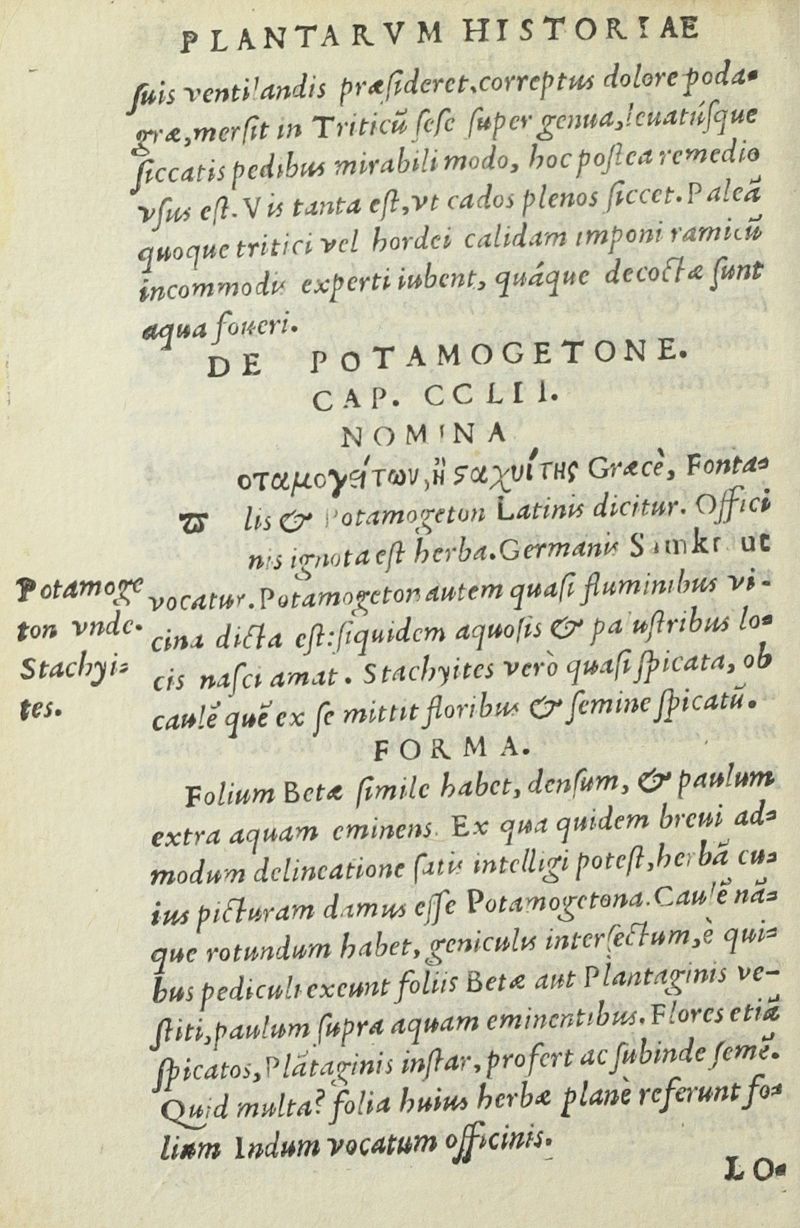 PLANTARVM HISTORIAE
suis ventilandis præsideret, correptus dolore poda-
græ, mersit in Triticũ sese super genua, leuatúsque
siccatis pedibus mirabili modo, hoc postea remedio
vsus est. Vis tanta est, vt cados plenos siccet. Paleã
quoque tritici vel hordei calidam imponi ramicũ
incommodis experti iubent, quáque decoctæ sunt
aqua foueri.
DE POTAMOGETONE.
CAP. CCLII.
NOMINA
οταμογείτων, ἢ ϛαχυίτης Græcè, Fonta-
π lis & Potamogeton Latinis dicitur. Offici
nis ignota est herba. Germanis
Potamoge vocatur. Potamogeton autem quasi fluminibus vi-
ton vnde. cina dicta est: siquidem aquosis & palustribus lo-
Stachyi- cis nasci amat. Stachyites verò quasi spicata, ob
tes. caulẽ quẽ ex se mittit floribus & semine spicatũ.
FORMA.
Folium Betæ simile habet, densum, & paulum
extra aquam eminens. Ex qua quidem breui ad-
modum delineatione satis intelligi potest, herbã cu-
ius picturam damus esse Potamogetona. Caulẽ nã-
que rotundum habet, geniculis intersectum, è qui-
bus pediculi exeunt foliis Betæ aut Plantaginis ve-
stiti, paulum supra aquam eminentibus. Flores etiã
spicatos, Plãtaginis instar, profert ac subinde semẽ.
Quid multa? folia huius herbæ planè referunt fo-
lium Indum vocatum officinis.
LO-